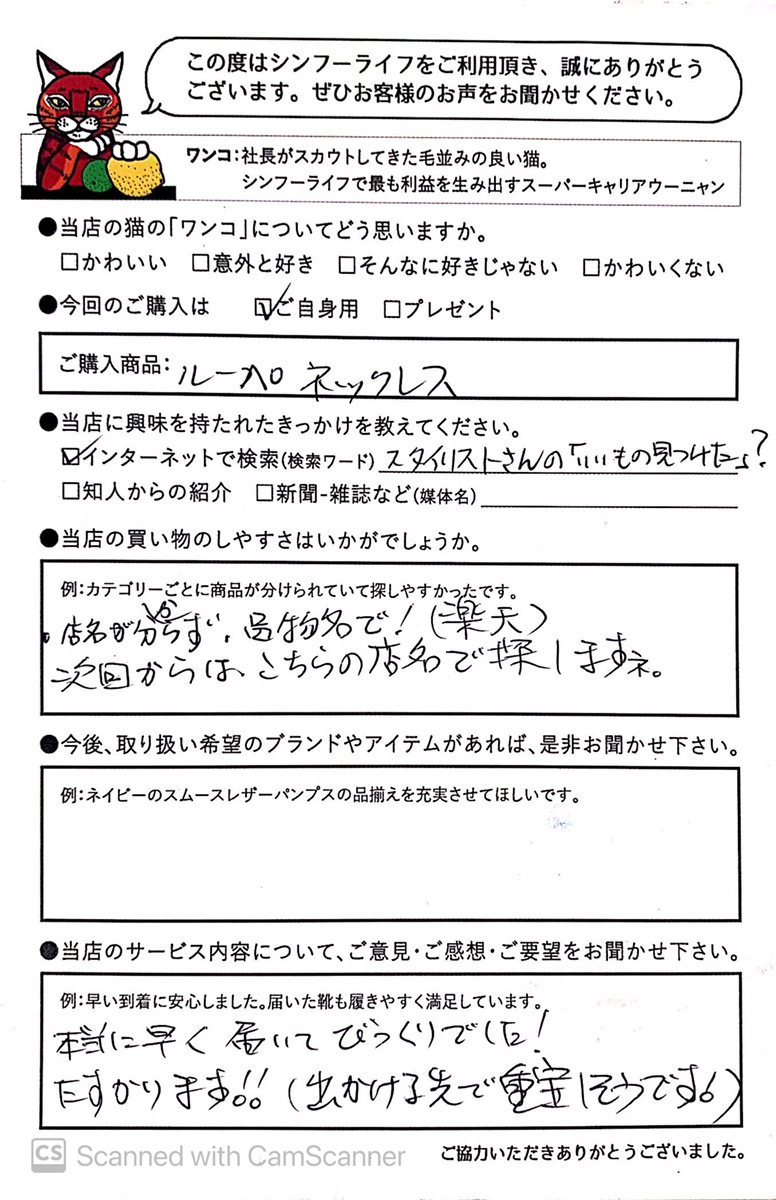 この度はシンフーライフをご利用頂き、誠にありがとう
ございます。ぜひお客様のお声をお聞かせください。
ワンコ:社長がスカウトしてきた毛並みの良い猫。
シンフーライフで最も利益を生み出すスーパーキャリアウーニャン
●当店の猫の「ワンコ」についてどう思いますか。
□かわいい □意外と好き □そんなに好きじゃない □かわいくない
●今回のご購入は ☑ご自身用 □プレゼント
ご購入商品: ルーペ ネックレス
●当店に興味を持たれたきっかけを教えてください。
☑インターネットで検索(検索ワード) スタイリストさんの「いいもの見つけたよ?
□知人からの紹介 □新聞-雑誌など(媒体名)
●当店の買い物のしやすさはいかがでしょうか。
例:カテゴリーごとに商品が分けられていて探しやすかったです。
・店名が分からず、品物名で!(楽天)
次回からは、こちらの店名で探しますネ。
●今後、取り扱い希望のブランドやアイテムがあれば、是非お聞かせ下さい。
例:ネイビーのスムースレザーパンプスの品揃えを充実させてほしいです。
●当店のサービス内容について、ご意見・ご感想・ご要望をお聞かせ下さい。
例:早い到着に安心しました。届いた靴も履きやすく満足しています。
本当に早く届いてびっくりでした!
たすかります!!(出かける先で重宝しそうです。)
ご協力いただきありがとうございました。
CS Scanned with CamScanner